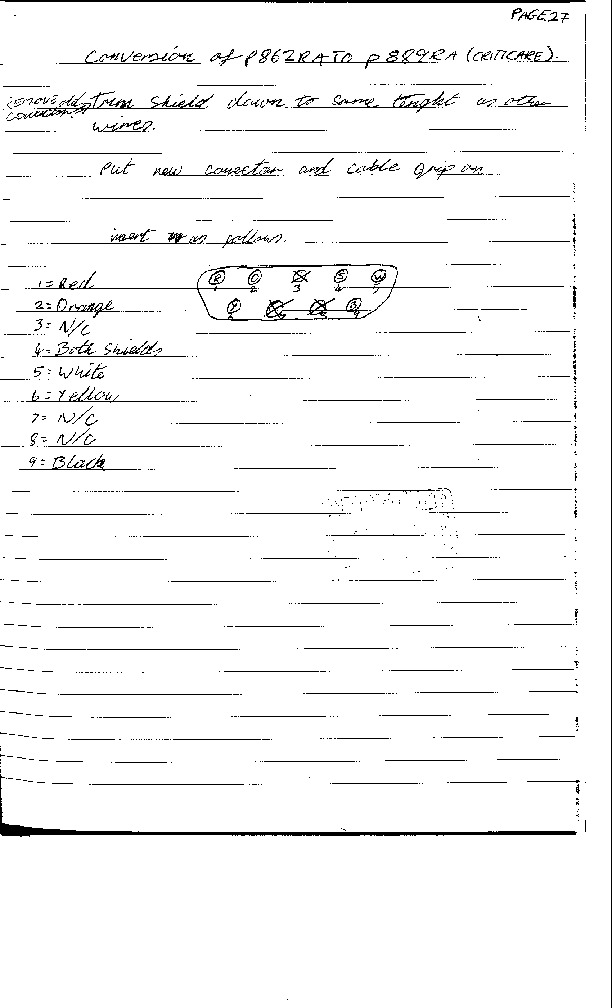 PAGE 27
Conversion of P862RA TO P889RA (CRITICARE).
remove old Trim Shield down to same lenght as other
conectors
wires.
Put new conector and cable grip on
insert as follows.
1 = Red
2 = Orange
3 = N/C
4 = Both Shields
5 = White
6 = Yellow
7 = N/C
8 = N/C
9 = Black
R O S W
1 2 3 4 5
Y B
9